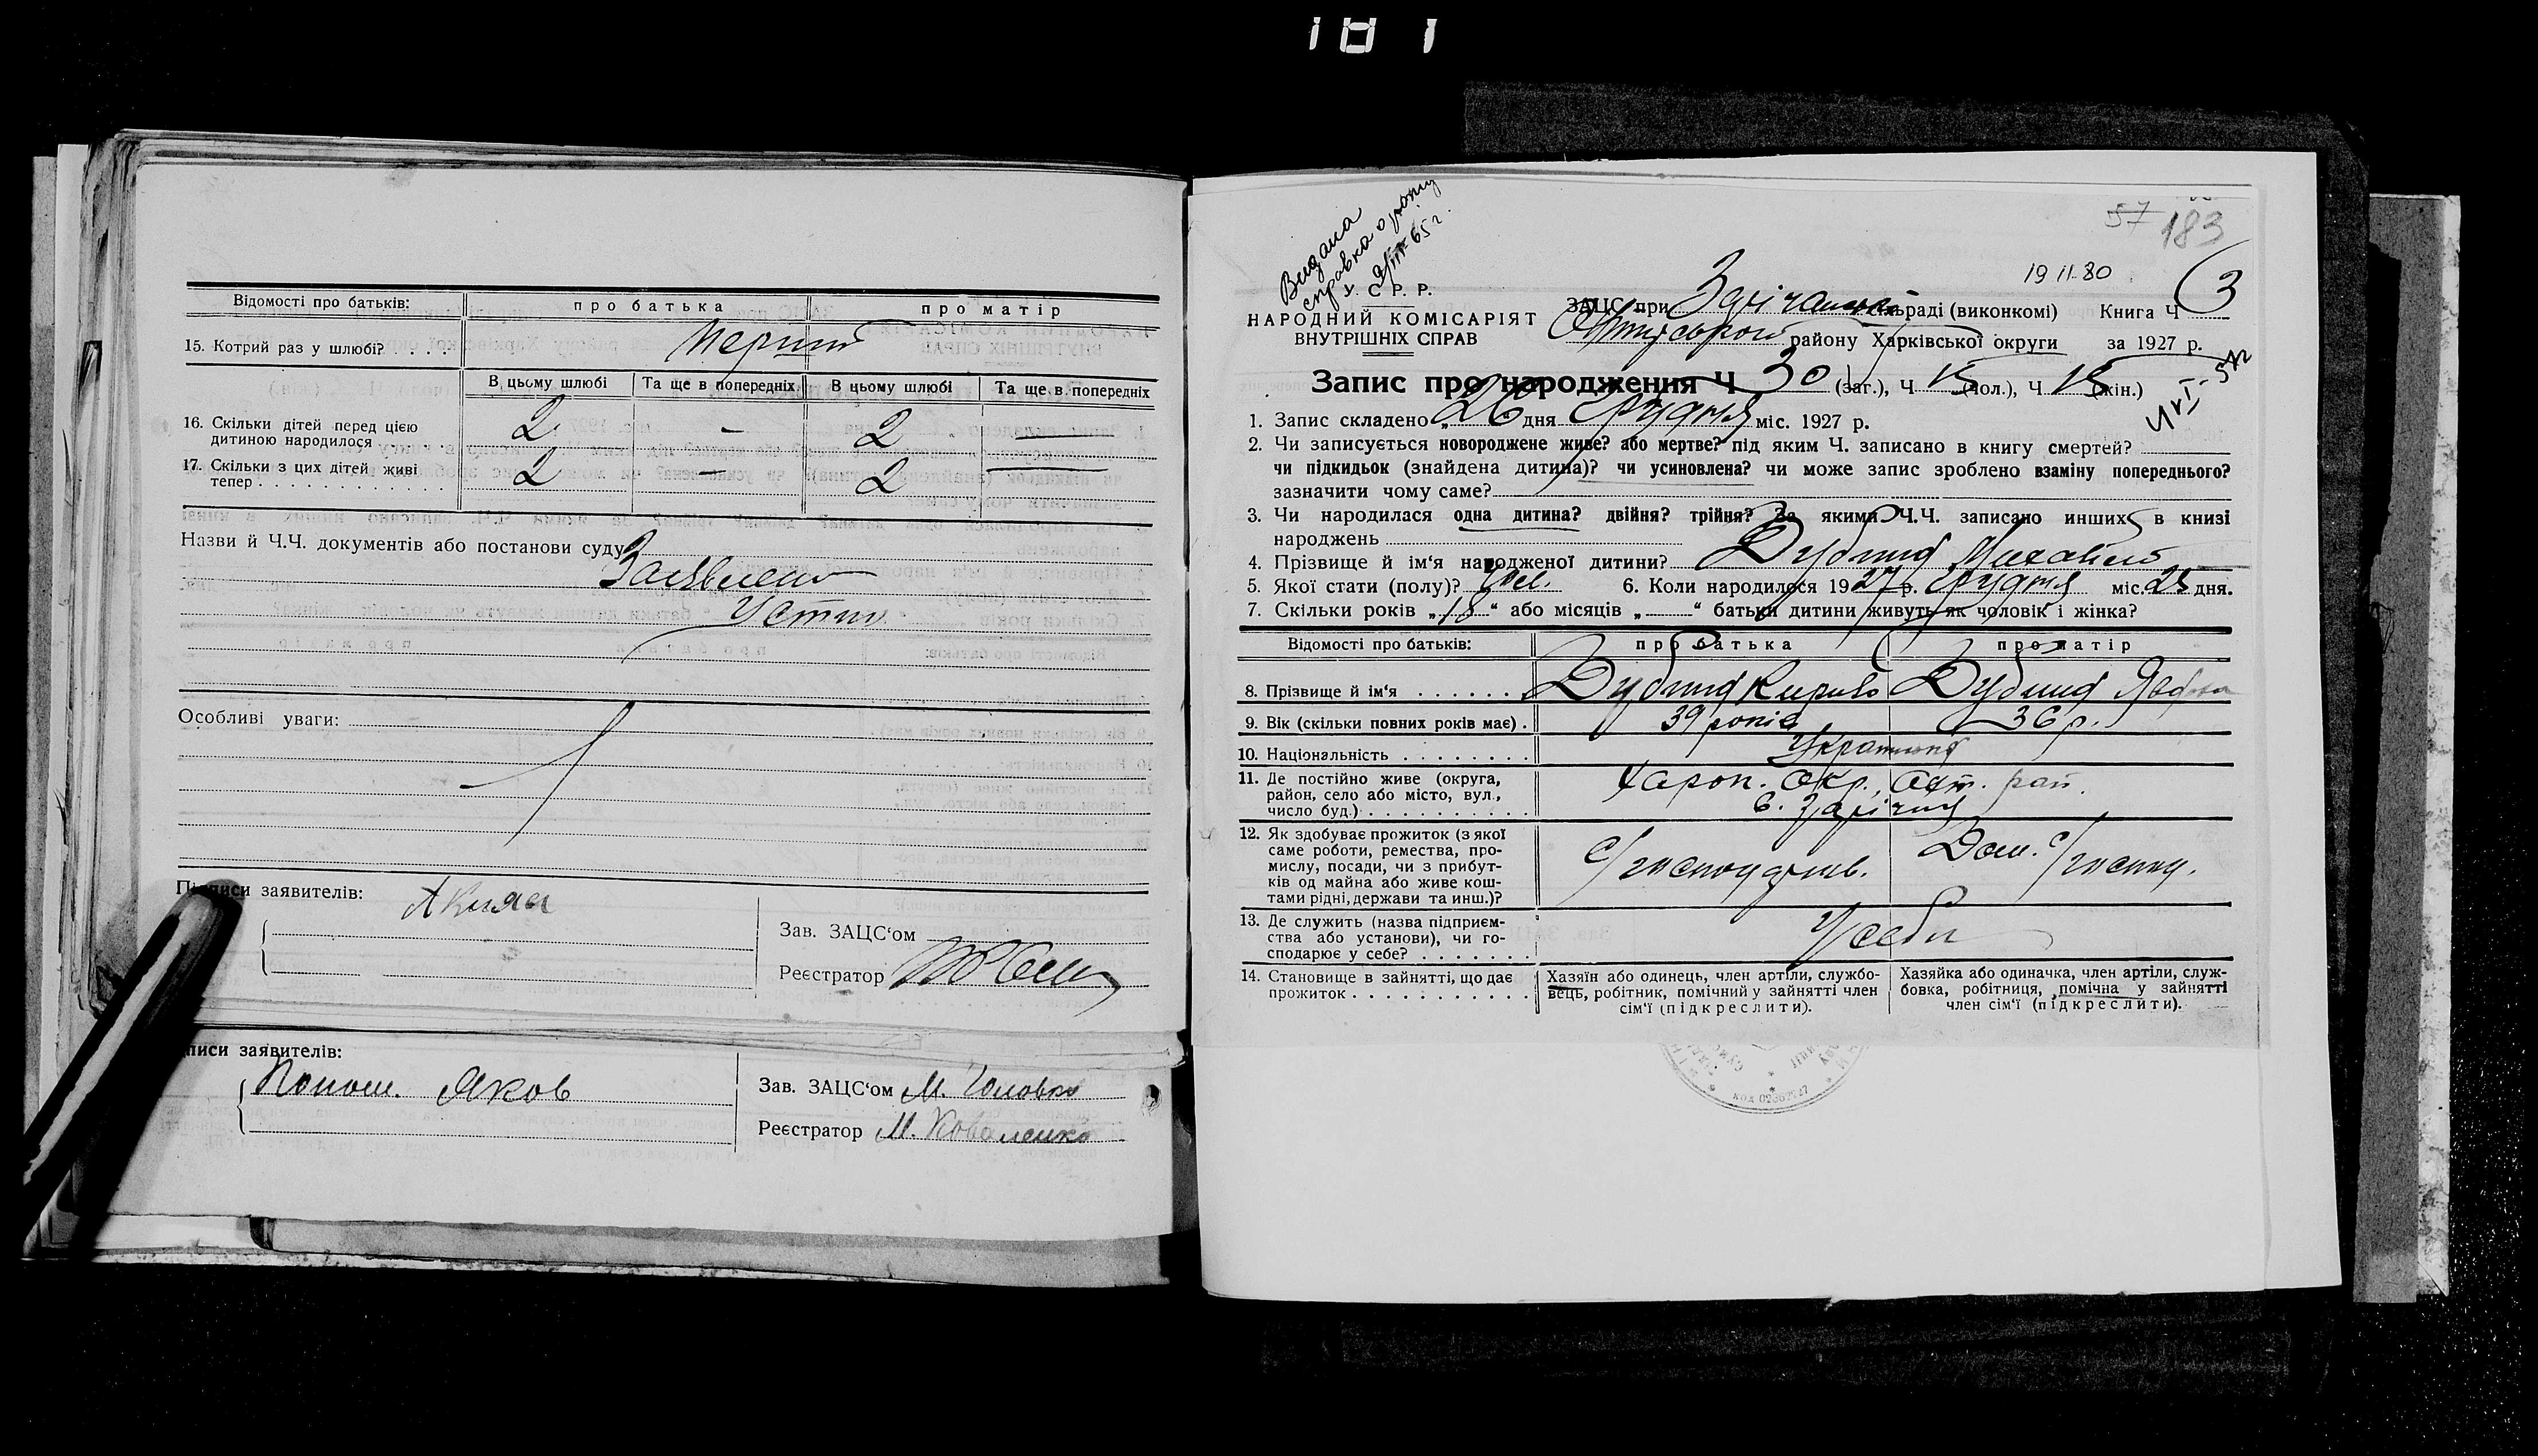 181
Відомості про батьків: про батька про матір
15. Котрий раз у шлюбі? . . . . Перший
В цьому шлюбі Та ще в попередніх В цьому шлюбі Та ще в попередніх
16. Скільки дітей перед цією
дитиною народилося 2 - 2 —
17. Скільки з цих дітей живі
тепер 2 - 2 —
Назви й Ч.Ч. документів або постанови суду
Заявлено
Устно
Особливі уваги:
Підписи заявителів:
Зав. ЗАЦС‘ом
Реєстратор
писи заявителів:
Яков
Зав. ЗАЦС‘ом М. Головко
Реєстратор М. Коваленко
57 183
Видана
справка
65 г.
19 II-80
3
У. С. Р. Р.
НАРОДНИЙ КОМІСАРІЯТ
ВНУТРІШНІХ СПРАВ
ЗАЦС при сільраді (виконкомі) Книга Ч 3
району Харківської округи за 1927 р.
Запис про народження Ч 30 (заг.), Ч 15 (чол.), Ч 15 (жін.)
1. Запис складено „ 26 дня Грудня міс. 1927 р.
2. Чи записується новороджене живе? або мертве? під яким Ч. записано в книгу смертей?
чи підкидьок (знайдена дитина)? чи усиновлена? чи може запис зроблено взаміну попереднього?
зазначити чому саме?
3. Чи народилася одна дитина? двійня? трійня? За якими Ч.Ч. записано инших в книзі
народжень
4. Прізвище й ім‘я народженої дитини?
5. Якої стати (полу)? Чол. 6. Коли народилося 1927 р. Грудня міс. 25 дня.
7. Скільки років „ 18 “ або місяців „ “ батьки дитини живуть як чоловік і жінка?
Відомості про батьків: про батька про матір
8. Прізвище й ім‘я
9. Вік (скільки повних років має) . 39 років 36 р.
10. Національність
11. Де постійно живе (округа,
район, село або місто, вул.,
число буд.) Окр., рай.
с. Зарічня
12. Як здобуває прожиток (з якої
саме роботи, ремества, про-
мислу, посади, чи з прибут-
ків од майна або живе кош-
тами рідні, держави та инш.)? Дом.
13. Де служить (назва підприєм-
ства або установи), чи го-
сподарює у себе? У себе
14. Становище в зайнятті, що дає
прожиток
Хазяїн або одинець, член артіли, службо-
вець, робітник, помічний у зайнятті член
сім‘ї (підкреслити).
Хазяйка або одиначка, член артіли, служ-
бовка, робітниця, помічна у зайнятті
член сім‘ї (підкреслити).